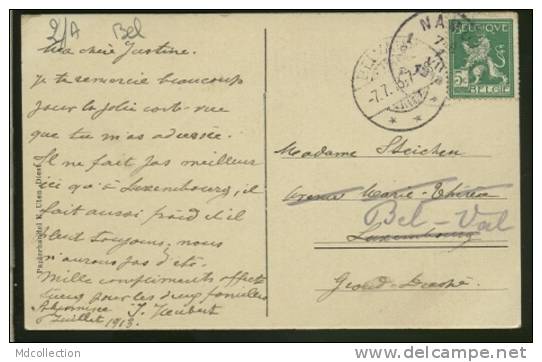 2/A Bel
Ma chère Justine.
Je te remercie beaucoup
pour la jolie carte-vue
que tu m'as adressée.
Il ne fait pas meilleur
ici qu'à Luxembourg, il
fait aussi froid et il
pleut toujours, nous
n'aurons pas d'été.
Mille compliments affect
ueux pour les deux familles
J. Heubert
6 Juillet 1913.
Papierhandel E. Uten, Diest
NA
BELGIQUE
5c
BELGIË
-7.7.
Madame Steichen
Avenue Marie-Thérèse
Bel-Val
Luxembourg
Grand-Duché
MDcollection
http://www.delcampe.net